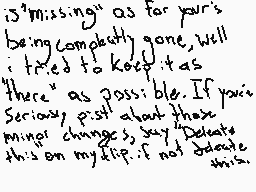 is "missing" as for your's
being complectly gone, well
i tried to keep it as
"there" as possible. If you're
serious, pist about those
minor changes, say "Deleate
this" on my flip. if not deleate
this.